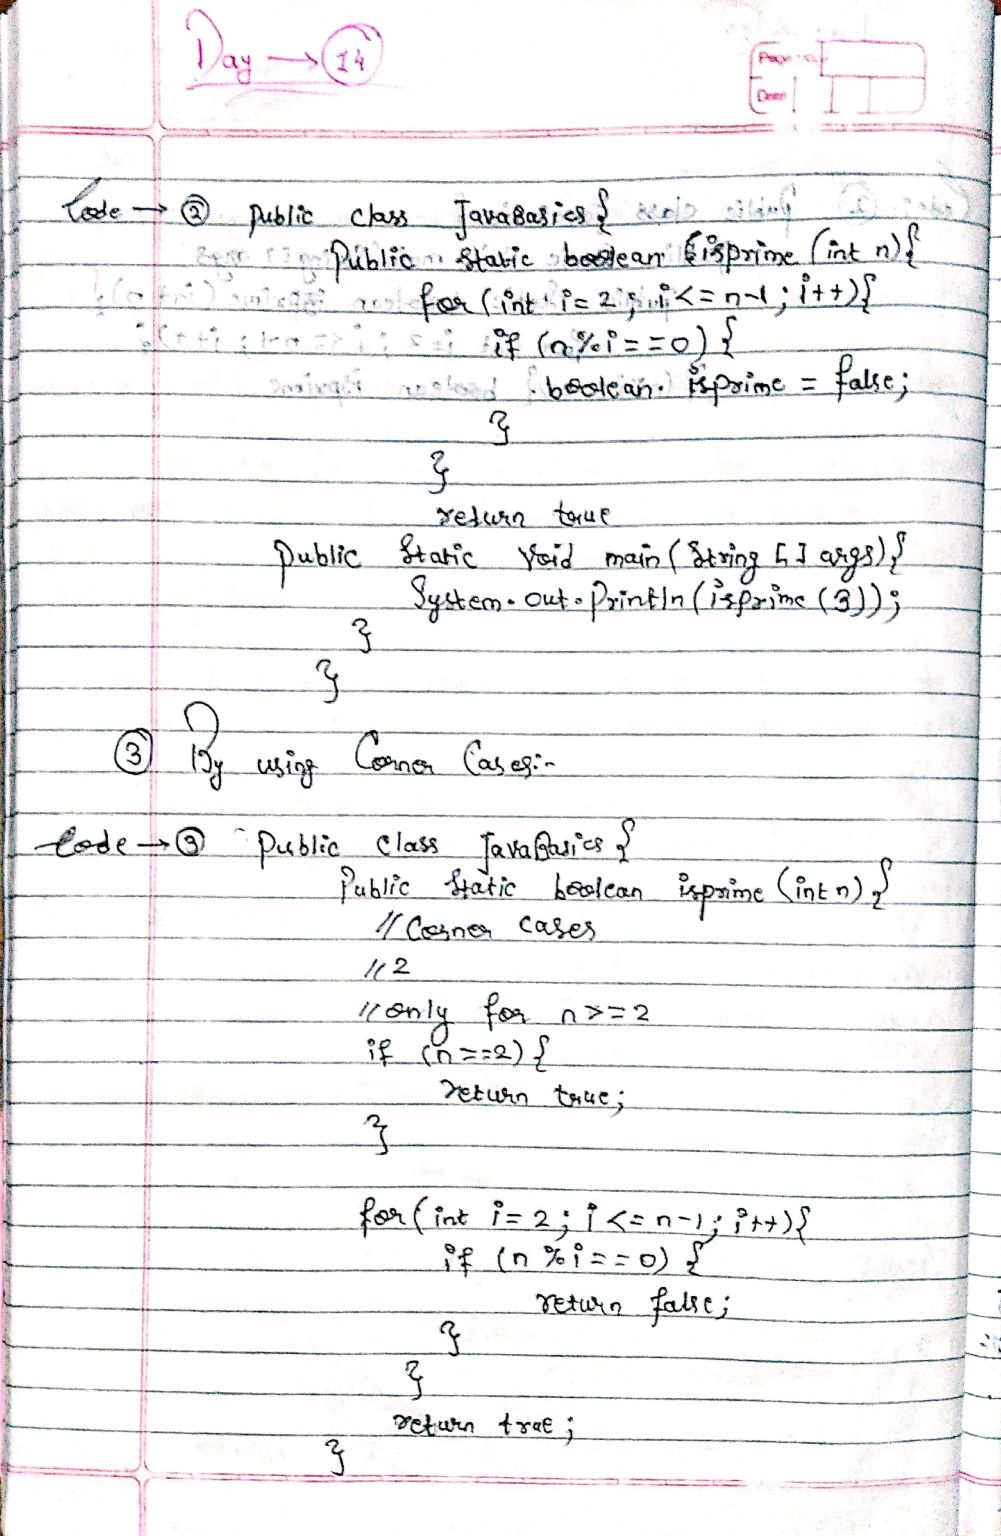 Day → 14
Page no.
Date
Code → ② Public class JavaBasics {
Public static boolean isprime (int n) {
for (int i = 2 ; i <= n-1 ; i++) {
if (n%i==0) {
boolean isprime = false;
}
}
return true
Public Static Void main (String [] args) {
System.out.Println (isprime (3));
}
}
③ By using Corner Cases:-
Code → ③ Public class JavaBasics {
Public Static boolean isprime (int n) {
// Corner cases
// 2
// only for n >= 2
if (n==2) {
return true;
}
for (int i = 2 ; i <= n-1 ; i++) {
if (n % i == 0) {
return false;
}
}
return true ;
}